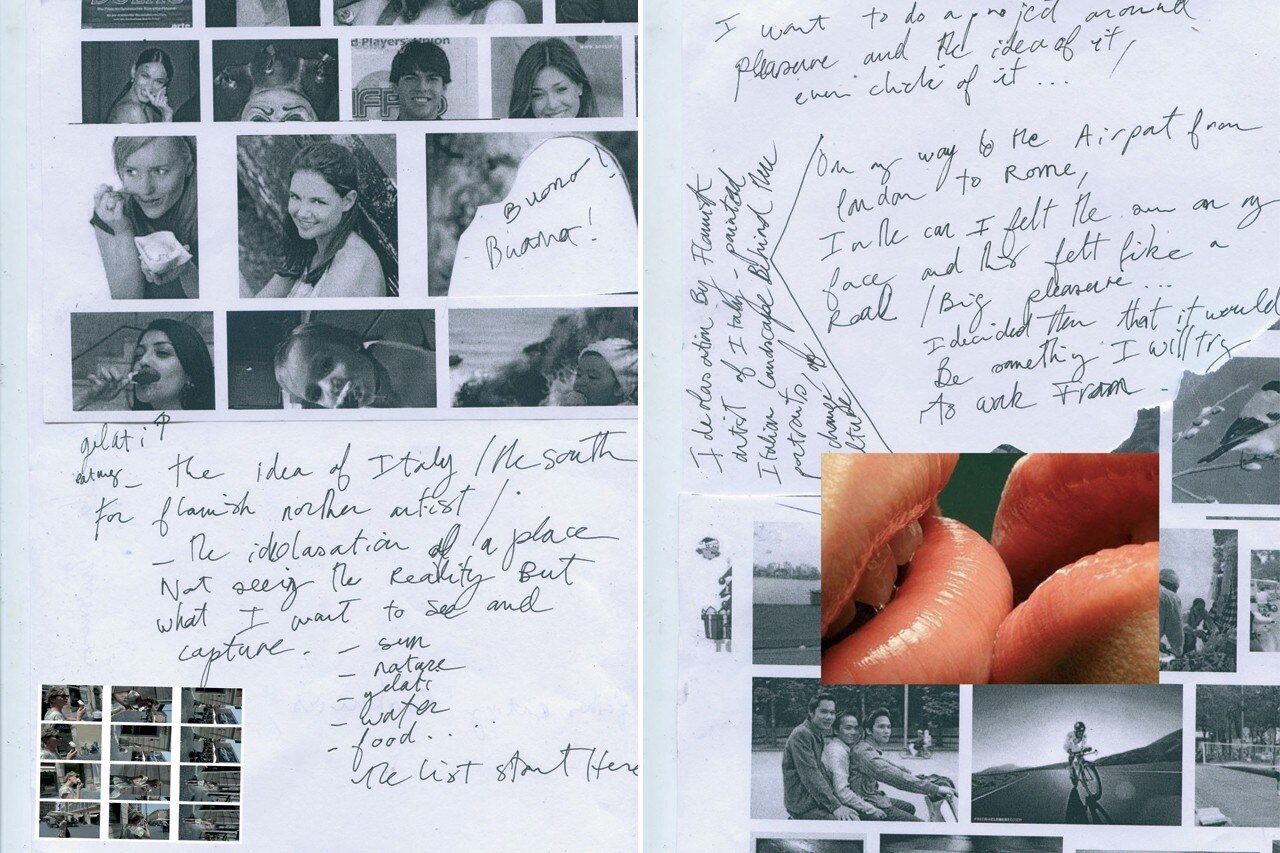 d Players' Union
IFF
- Buono!
- Buona!
gelati
eating -
the idea of Italy / the south
For flamish norther artist /.
- the idolasation of a place
Not seeing the Reality But
what I want to see and
capture.
- sun
- nature
- gelati
- water
- food...
the list start Here
I want to do a project around
pleasure and the idea of it,
even cliché of it...
On my way to the Airport from
london to Rome,
In the car I felt the sun on my
face and this felt like a
Real / Big pleasure...
I decided then that it would
Be something I will try
to work From.
Idealasation By Flamish
artist of Italy - painted
Italian landscape Behind the
portraits of
change of
lture